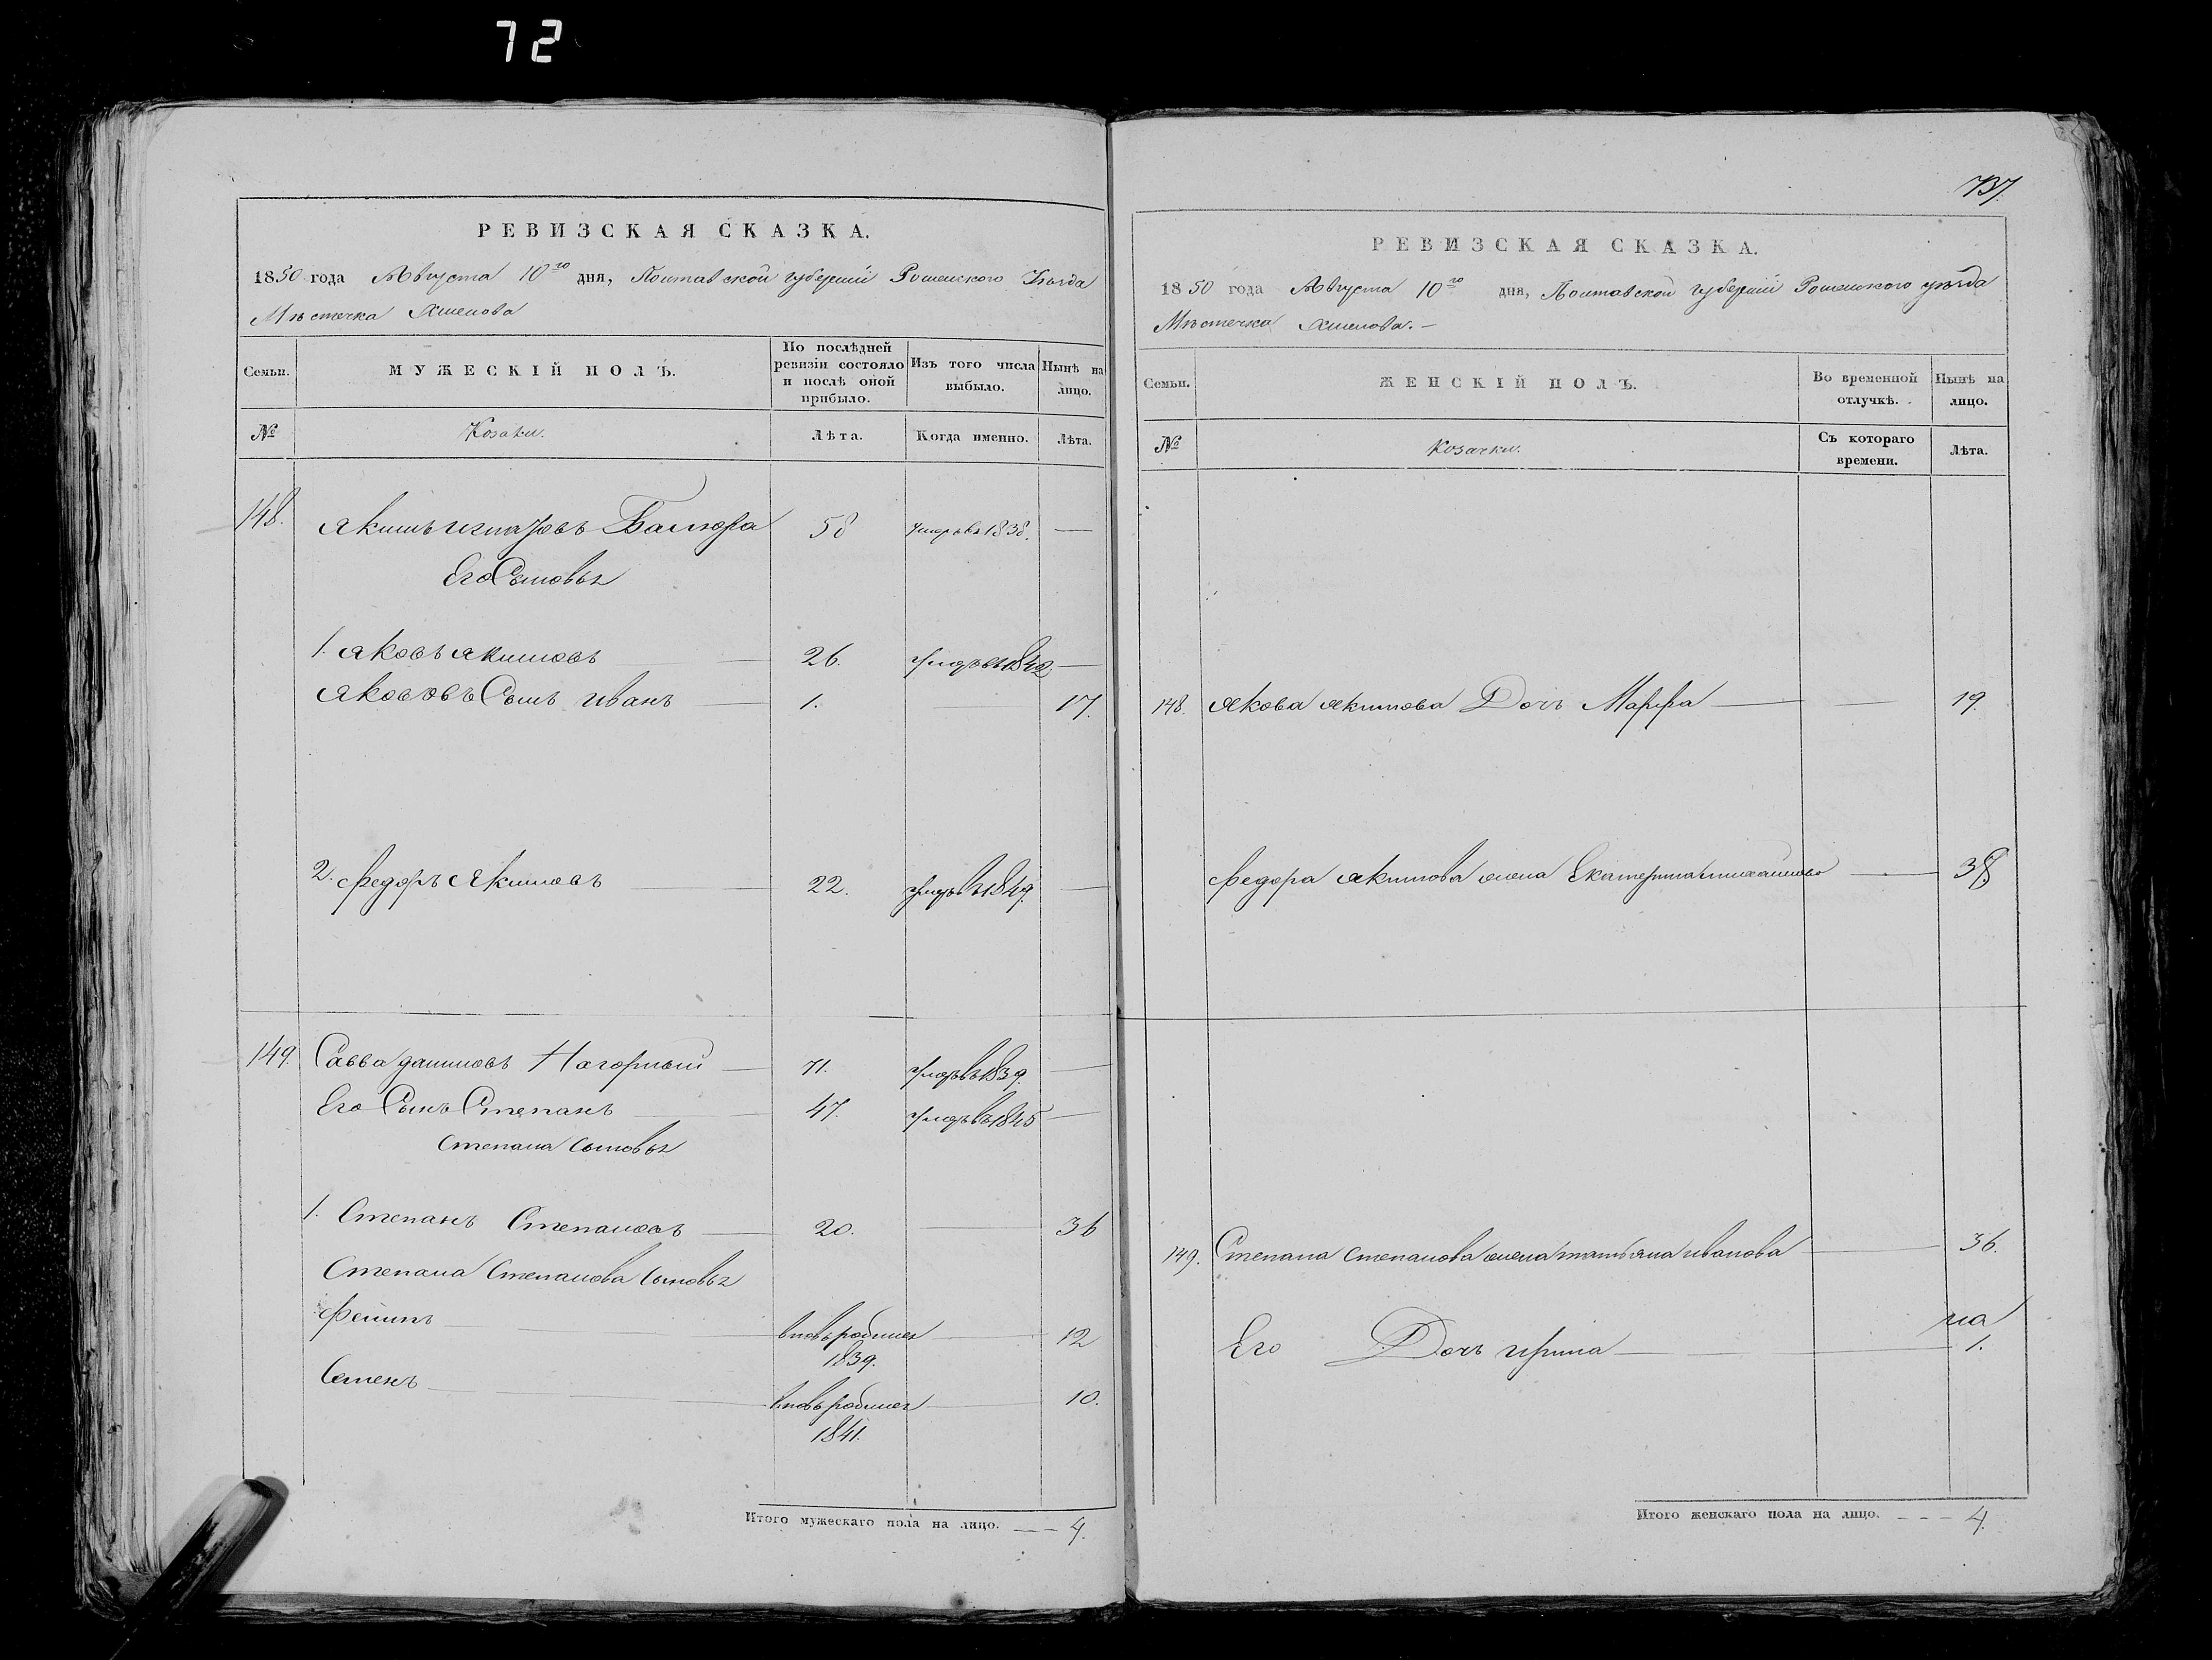 72
РЕВИЗСКАЯ СКАЗКА.
1850 года Августа 10го дня, Полтавской губерніи Роменского Уѣзда
Мѣстечка Хмелова
Семьи.
МУЖЕСКІЙ ПОЛЪ.
По послѣдней ревизіи состояло и послѣ оной прибыло.
Изъ того числа выбыло.
Нынѣ на лицо.
№
Козаки.
Лѣта.
Когда именно.
Лѣта.
148. Якимъ Балюра 58 умеръ въ 1838. —
Его Сыновья
1. Яковъ Якимовъ 26. умеръ въ 1842. —
Яковавъ Сынъ Иванъ 1. 17.
2. Федоръ Якимовъ 22. умеръ въ 1849. —
149. Савва Нагорный 71. умеръ въ 1839. —
Его Сынъ Степанъ 47. умеръ въ 1845 —
Степана Сыновья
1. Степанъ Степановъ 20. — 36
Степана Степанова Сыновья
Филипъ вновьродился 12
1839.
Семенъ вновьродился 10.
1841.
Итого мужескаго пола на лицо. — — 4.
737.
РЕВИЗСКАЯ СКАЗКА.
1850 года Августа 10го дня, Полтавской губерніи Роменского уѣзда
Мѣстечка Хмелова. —
Семьи.
ЖЕНСКІЙ ПОЛЪ.
Во временной отлучкѣ.
Нынѣ на лицо.
№
Козачки.
Съ котораго времени.
Лѣта.
148. Якова Якимова Дочь Марфа — — 19.
Федора Якимова жена Екатерина Михайлова — 38.
149. Степана Степанова жена татьяна иванова — 36.
на
Его Дочь ирина — 1.
Итого женскаго пола на лицо. — — — 4.